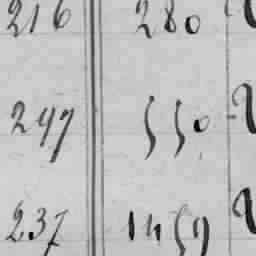 216 280
247 550
237 1459